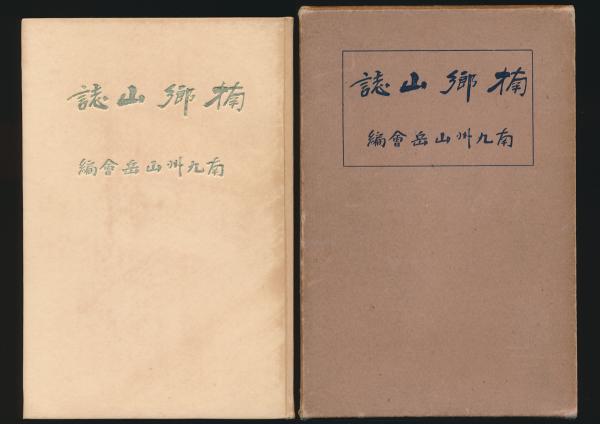 楠鄉山誌
南九州山岳會編
楠鄉山誌
南九州山岳會編